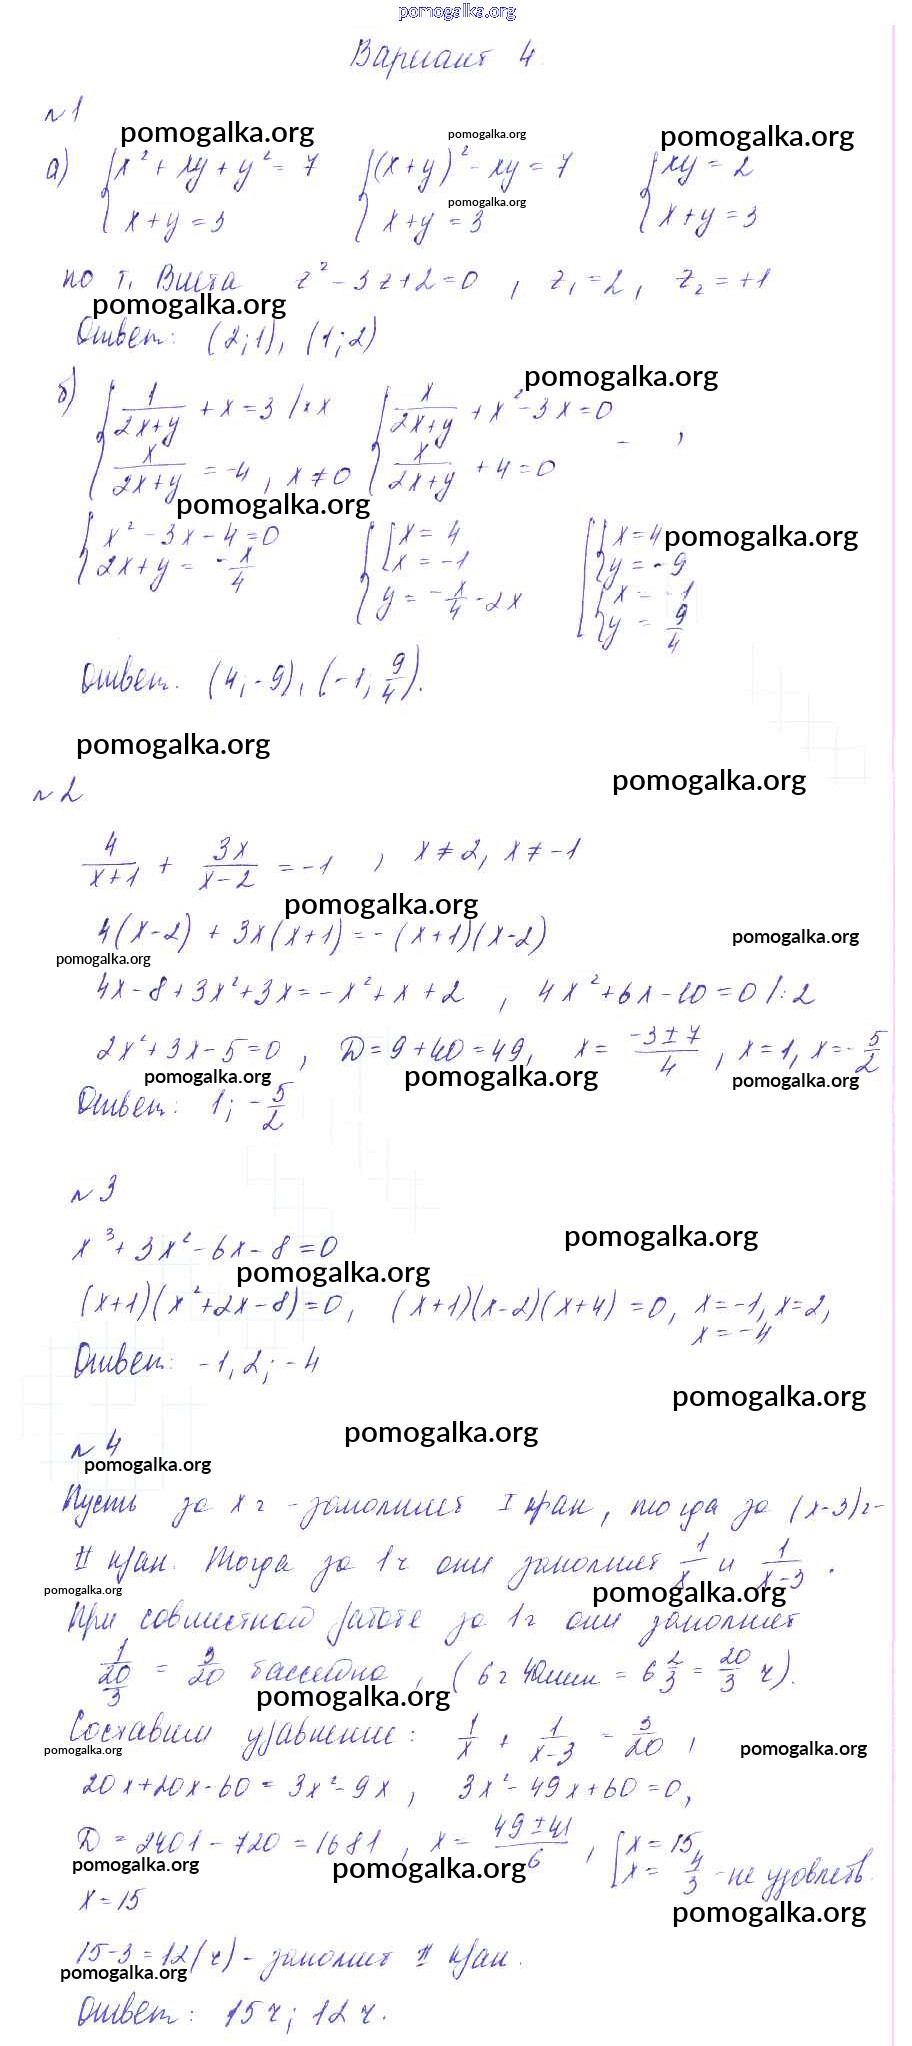 pomogalka.org
Вариант 4.
№1
pomogalka.org pomogalka.org pomogalka.org
а) {x² + xy + y² = 7 {(x+y)² - xy = 7 {xy = 2
pomogalka.org
x+y = 3 x+y = 3 x+y = 3
по т. Виета z² - 3z + 2 = 0 , z₁ = 2, z₂ = +1
pomogalka.org
Ответ: (2;1), (1;2)
pomogalka.org
б) {1/(2x+y) + x = 3 /·x {x/(2x+y) + x² - 3x = 0 ,
x/(2x+y) = -4, x ≠ 0 x/(2x+y) + 4 = 0
pomogalka.org
{x² - 3x - 4 = 0 {[x = 4 [{x = 4 pomogalka.org
2x+y = -x/4 x = -1 y = -9
y = -x/4 - 2x {x = -1
y = 9/4
Ответ. (4;-9), (-1; 9/4).
pomogalka.org
pomogalka.org
№2
4/(x+1) + 3x/(x-2) = -1 , x ≠ 2, x ≠ -1
pomogalka.org
4(x-2) + 3x(x+1) = -(x+1)(x-2) pomogalka.org
pomogalka.org
4x - 8 + 3x² + 3x = -x² + x + 2 , 4x² + 6x - 10 = 0 /:2
2x² + 3x - 5 = 0 , D = 9 + 40 = 49, x = (-3±7)/4 , x = 1, x = -5/2
pomogalka.org pomogalka.org pomogalka.org
Ответ: 1; -5/2
№3
pomogalka.org
x³ + 3x² - 6x - 8 = 0
pomogalka.org
(x+1)(x² + 2x - 8) = 0, (x+1)(x-2)(x+4) = 0, x = -1, x = 2,
x = -4
Ответ: -1, 2; -4
pomogalka.org
pomogalka.org
№4
pomogalka.org
Пусть за x ч - заполнит I кран, тогда за (x-3)ч -
II кран. Тогда за 1ч они заполнят 1/x и 1/(x-3) .
pomogalka.org pomogalka.org
При совместной работе за 1ч они заполнят
1/(20/3) = 3/20 бассейна , (6ч 40мин = 6 2/3 = 20/3 ч).
pomogalka.org
Составим уравнение: 1/x + 1/(x-3) = 3/20 ,
pomogalka.org pomogalka.org
20x + 20x - 60 = 3x² - 9x , 3x² - 49x + 60 = 0,
D = 2401 - 720 = 1681 , x = (49±41)/6 , [x = 15,
x = 4/3 - не удовлетв.
pomogalka.org pomogalka.org
x = 15
pomogalka.org
15-3 = 12(ч) - заполнит II кран.
pomogalka.org
Ответ: 15ч; 12ч.